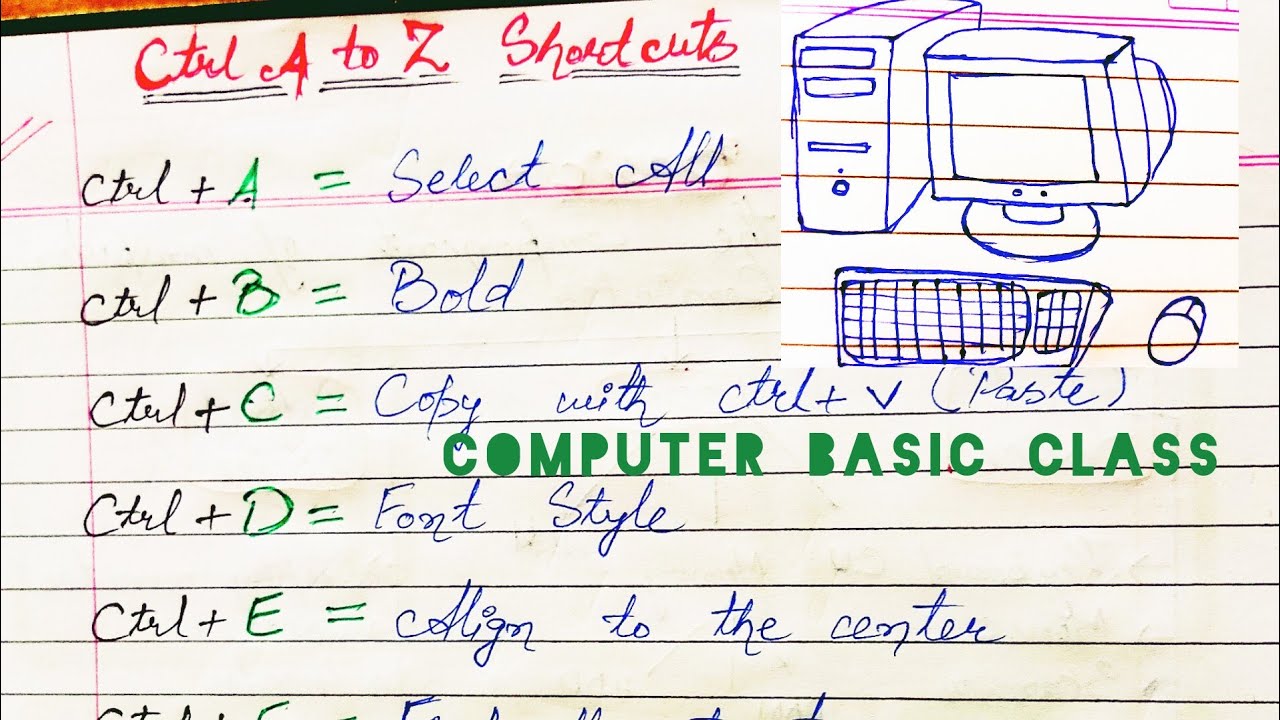 Ctrl A to Z Shortcuts
Ctrl + A = Select All
Ctrl + B = Bold
Ctrl + C = Copy with ctrl + V (Paste)
COMPUTER BASIC CLASS
Ctrl + D = Font Style
Ctrl + E = Align to the center